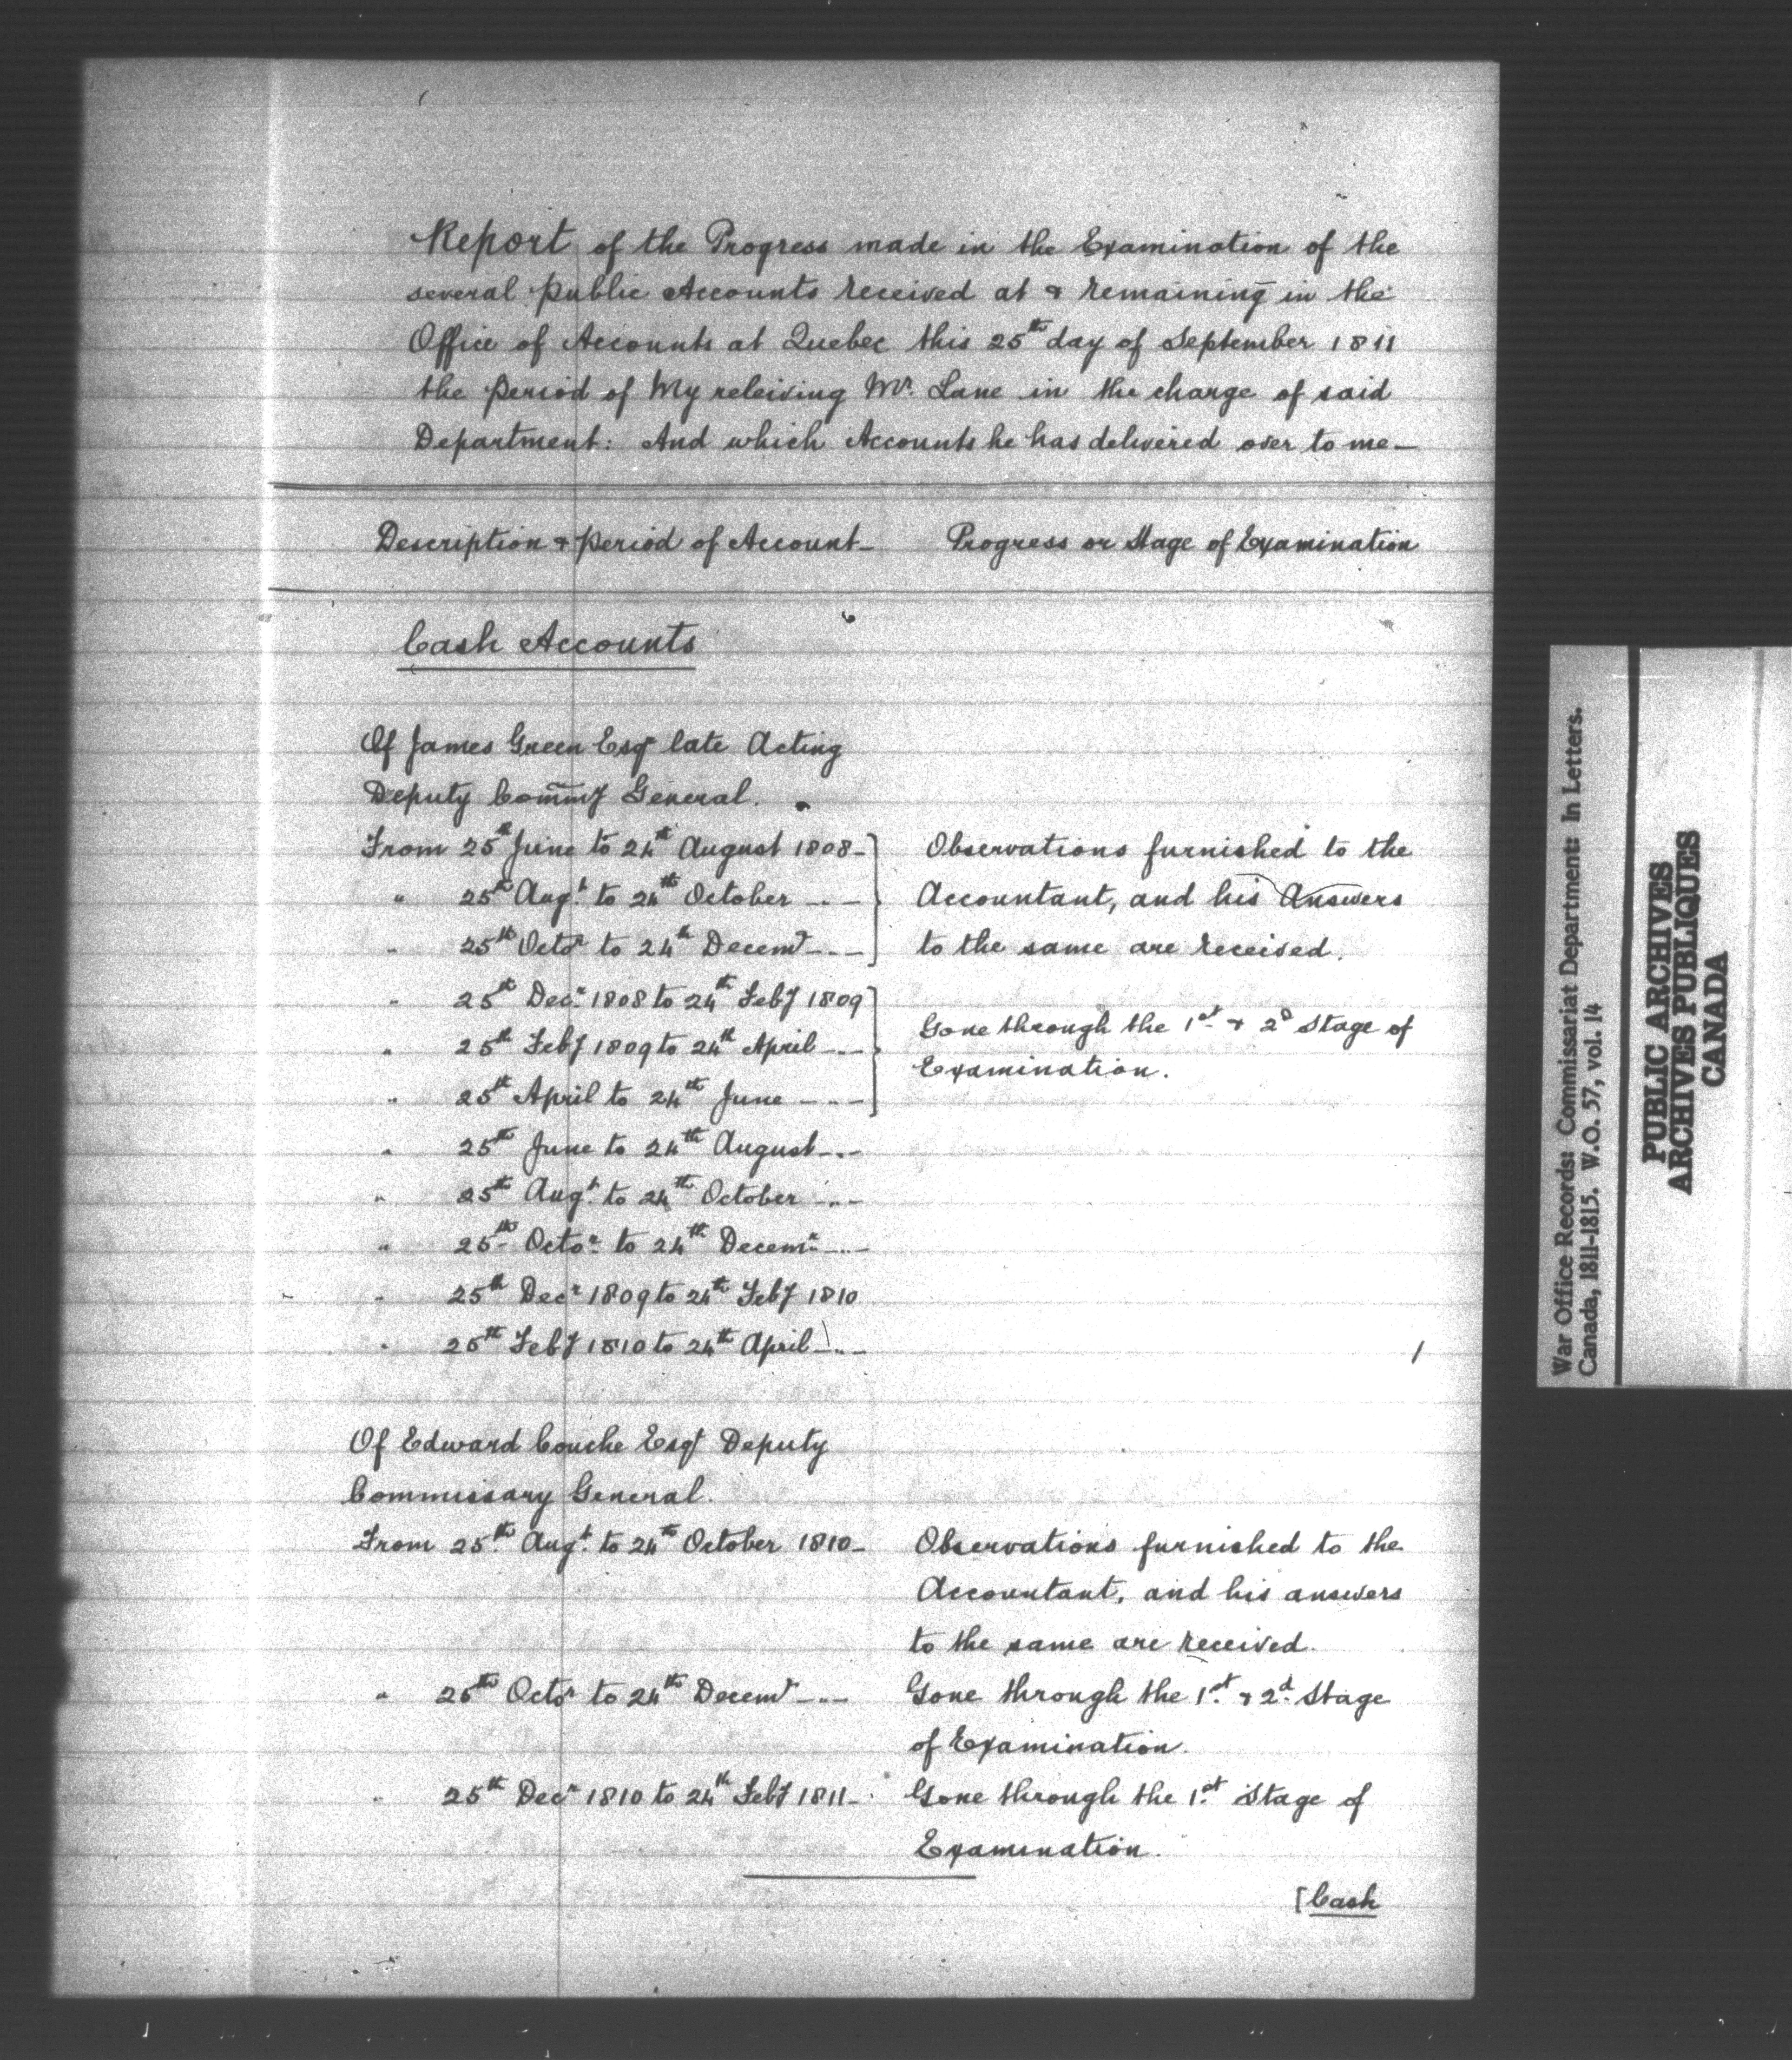 Report of the Progress made in the Examination of the
several Public Accounts received at & remaining in the
Office of Accounts at Quebec this 25th day of September 1811
the Period of My releiving Mr. Lane in the charge of said
Department: And which Accounts he has delivered over to me—
Description & Period of Account— Progress or Stage of Examination
Cash Accounts
Of James Green Esqr late Acting
Deputy Commy General.
From 25th June to 24th August 1808— Observations furnished to the
" 25th Augt. to 24th October —"— Accountant, and his Answers
" 25th Octor to 24th Decemr —"— to the same are received.
" 25th Decr 1808 to 24th Feby 1809
Gone through the 1st & 2d Stage of
" 25th Feby 1809 to 24th April —"—
Examination.
" 25th April to 24th June —"—
" 25th June to 24th August —"—
" 25th Augt. to 24th October —"—
" 25th Octor to 24th Decemr —"—
" 25th Decr 1809 to 24th Feby 1810
" 25th Feby 1810 to 24th April —"—
Of Edward Couche Esqr Deputy
Commissary General.
From 25th Augt. to 24th October 1810— Observations furnished to the
Accountant, and his answers
to the same are received.
" 25th Octor to 24th Decemr —"— Gone through the 1st & 2d Stage
of Examination.
" 25th Decr 1810 to 24th Feby 1811— Gone through the 1st Stage of
Examination.
[Cash
War Office Records: Commissariat Department: In Letters.
Canada, 1811-1815. W.O. 57, vol. 14
PUBLIC ARCHIVES
ARCHIVES PUBLIQUES
CANADA